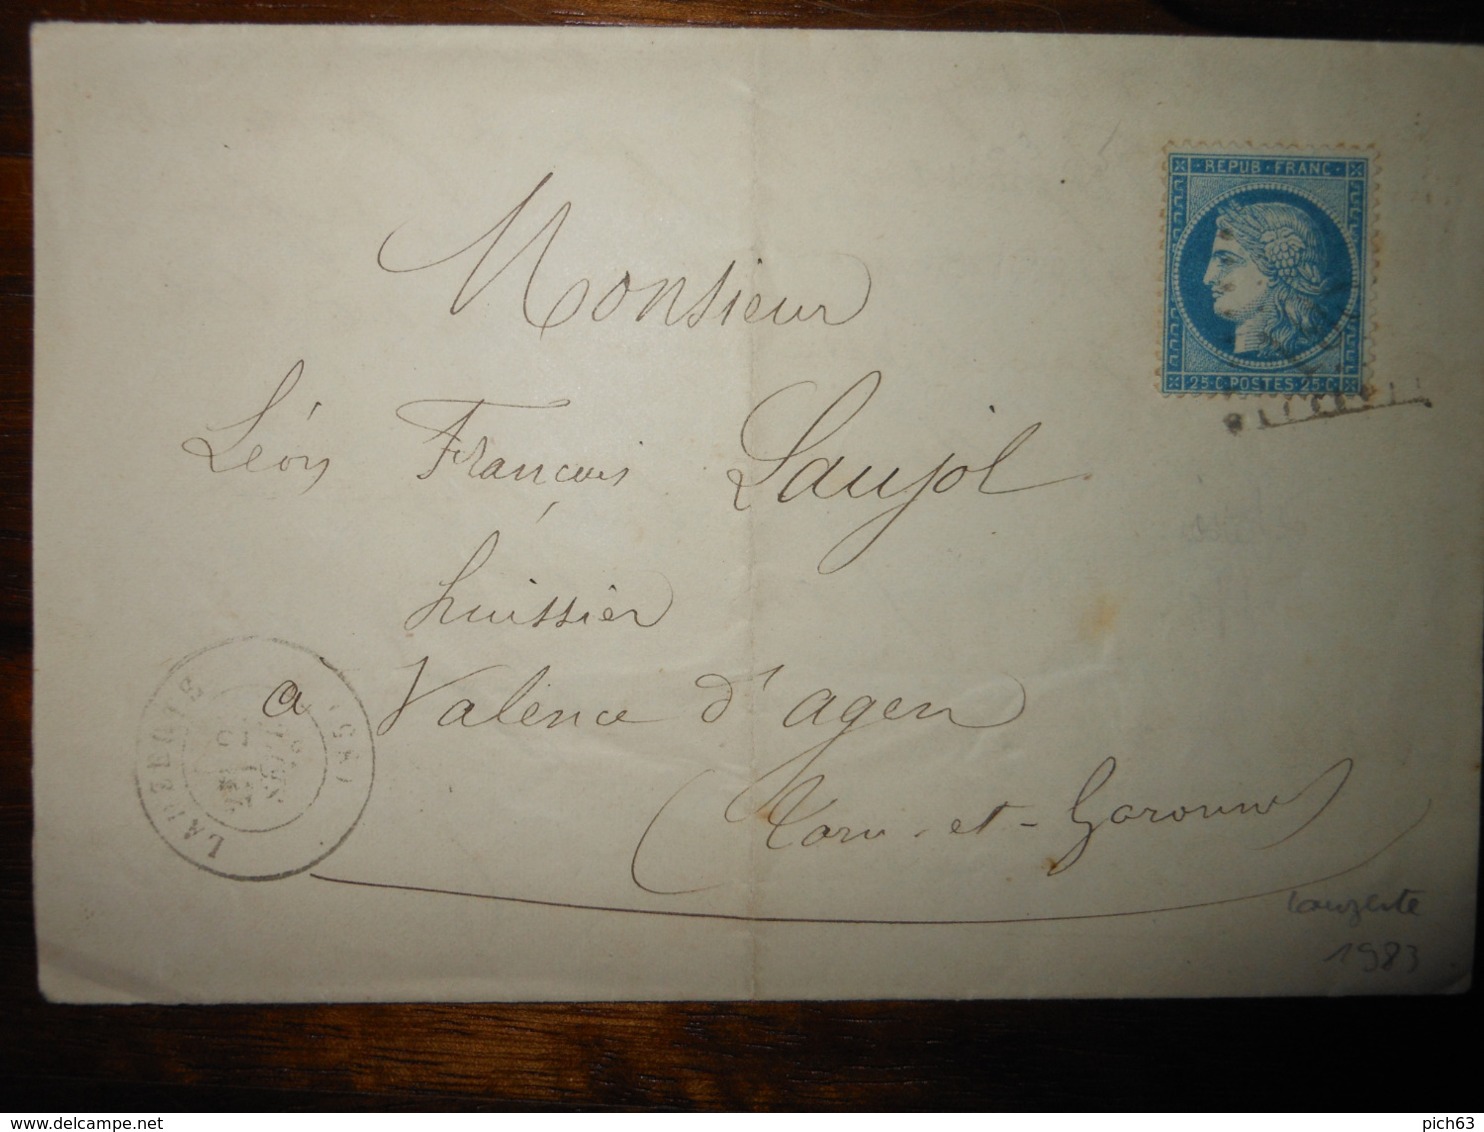 REPUB·FRANC
25·C·POSTES·25·C
Monsieur
Léon François Laujol
huissier
à Valence d'agen
(Tarn-et-Garonne)
LAUZERTE (85)
Lauzerte
1983
delcampe.net
pich63